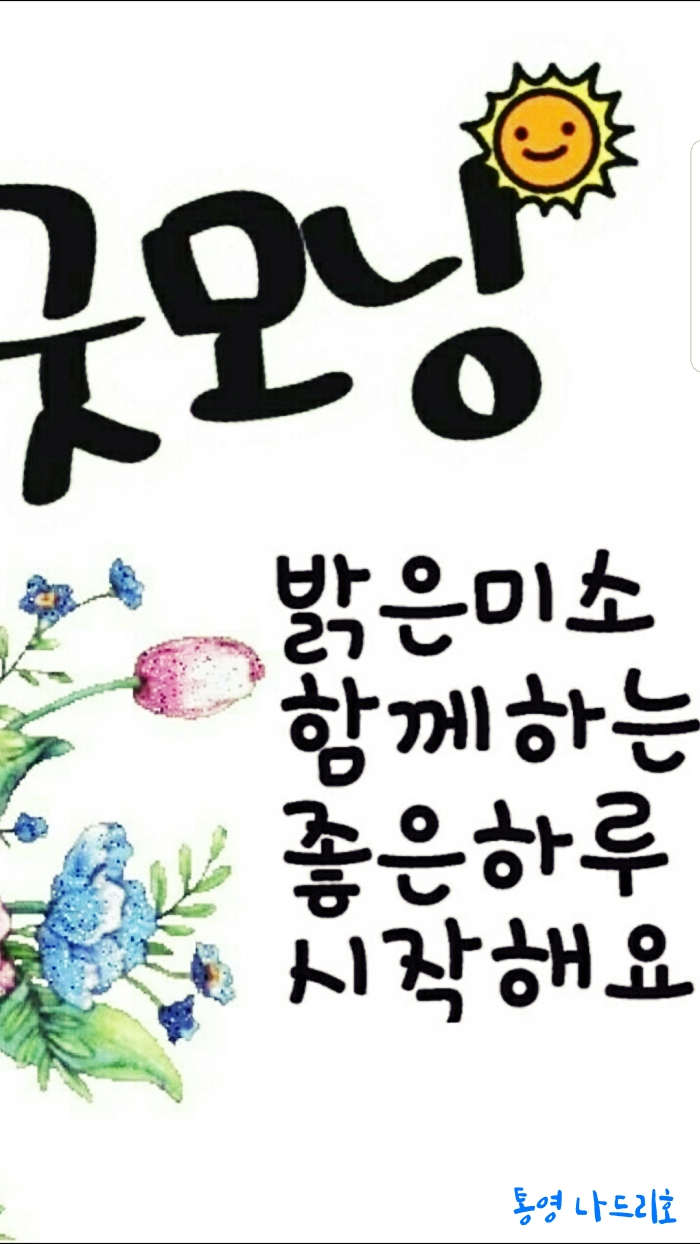 굿모닝
밝은미소
함께하는
좋은하루
시작해요
통영 나드리호